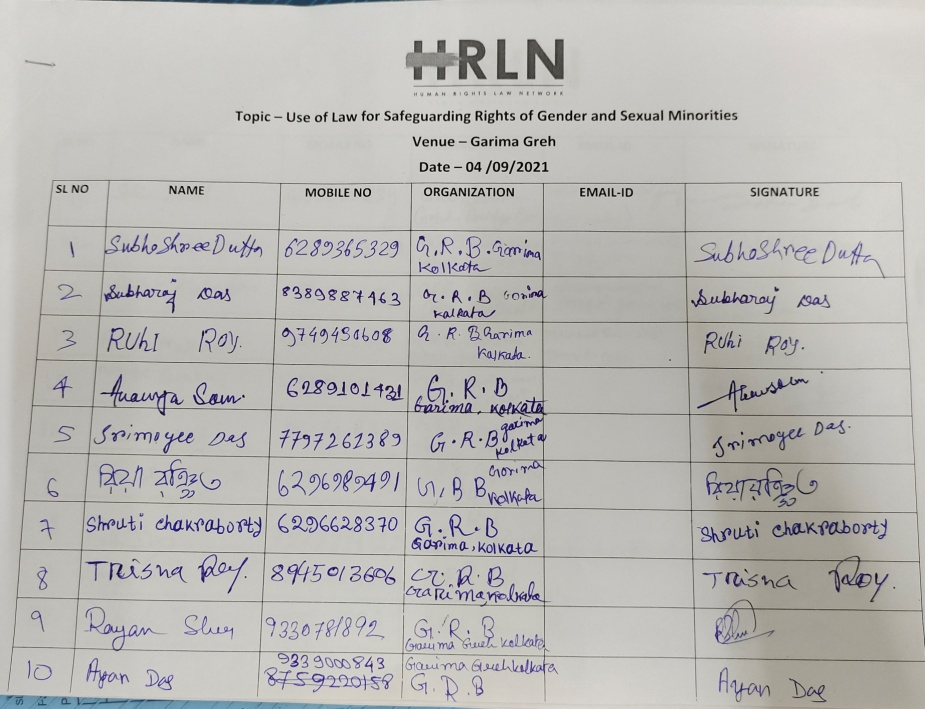 HRLN
HUMAN RIGHTS LAW NETWORK
Topic – Use of Law for Safeguarding Rights of Gender and Sexual Minorities
Venue – Garima Greh
Date – 04 /09/2021
SL NO NAME MOBILE NO ORGANIZATION EMAIL-ID SIGNATURE
1 SubhoShree Dutta 6289365329 G.R.B. Garima Kolkata SubhoShree Dutta
2 Subharaj Das 8389887463 G.R.B Gorima Kalkata Subharaj Das
3 RUhI ROY. 9749450608 G.R.B Garima Kalkata. RUhi Roy.
4 6289101431 G.R.B Garima, Kolkata
5 Srimoyee Das 7797261389 G.R.B garima Kolkata Srimoyee Das.
6 6296989491 G, B B Gorima Kolkata
7 Shruti chakraborty 6296628370 G.R.B Garima, Kolkata Shruti chakraborty
8 Trisna Roy. 8945013606 G.R.B Garima, Kolkata Trisna Roy.
9 Rayan 9330781892 G.R.B Garima Greh Kolkata
10 Ayan Das 9339000843 8759220158 Garima Greh kolkata G.R.B Ayan Das